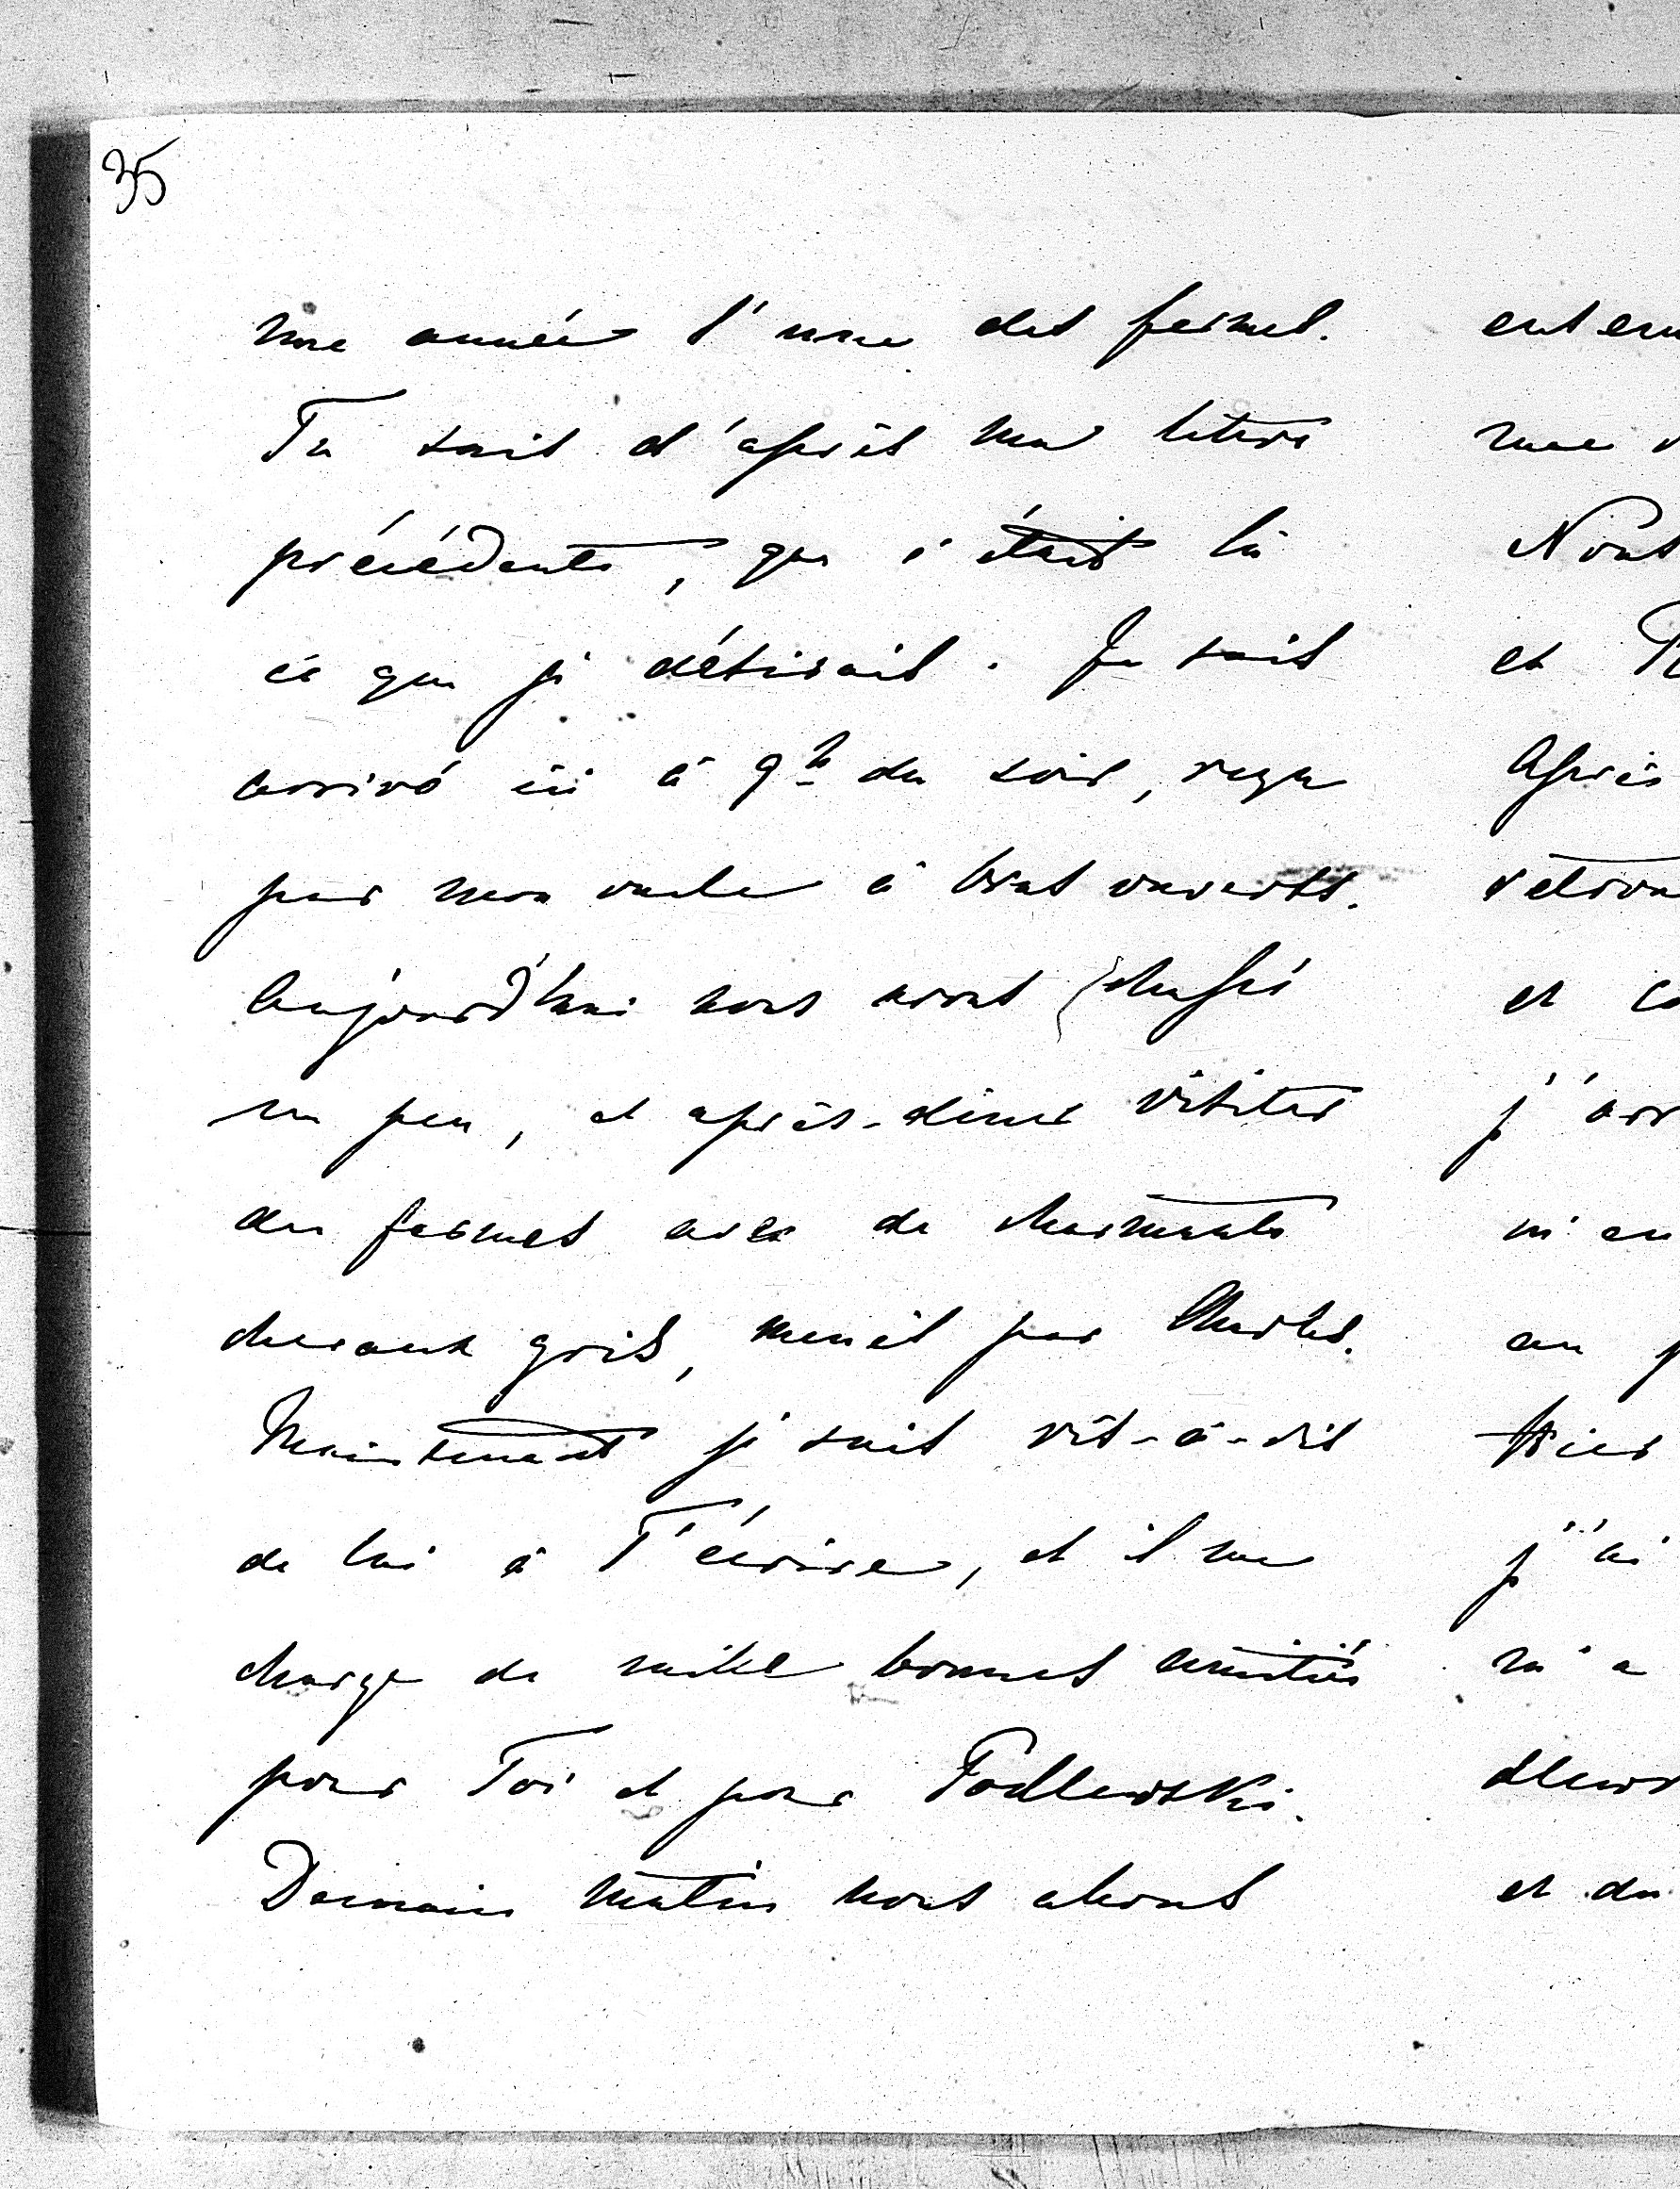 35
une année l'une des fermes.
Tu sais d'après ma lettre
précédente, que c'était là
ce que je désirais. Je suis
arrivé ici à 9h du soir, reçu
par mon oncle à bras ouverts.
Aujourd'hui nous avons chassé
un peu, et après-diner visiter
des fermes avec de charmants
chevaux gris, menés par Charles.
Maintenant je suis vis-à-vis
de lui à T'écrire, et il me
charge de mille bonnes amitiés
pour Toi et pour Podlewski.
Demain matin nous allons
Nous
et
Après
et
j'arr
m'en
au
Hier
j'ai
m'a
et du